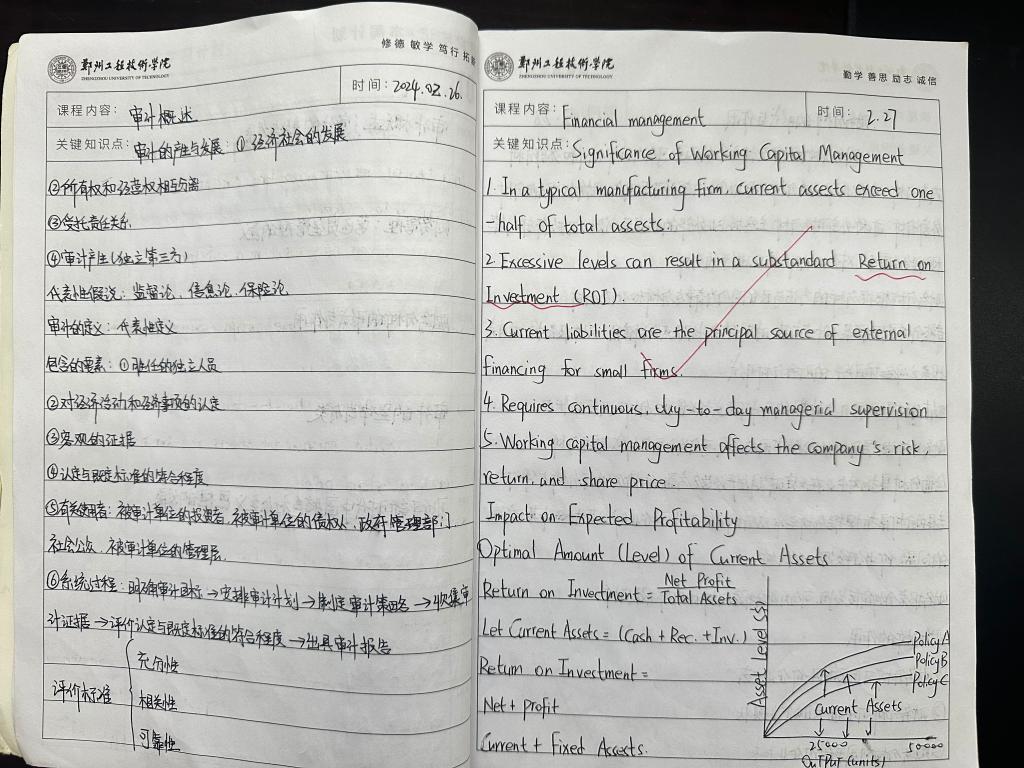 修德 敏学 笃行 拓
郑州工程技术学院
ZHENGZHOU UNIVERSITY OF TECHNOLOGY
时间: 2024.02.26.
课程内容: 审计概述
关键知识点: 审计的产生与发展: ① 经济社会的发展
②所有权和经营权相互分离
③受托责任关系
④审计产生(独立第三方)
代表性假说: 监督论、信息论、保险论
审计的定义: 代表性定义
包含的要素: ①胜任的独立人员
②对经济活动和经济事项的认定
③客观的证据
④认定与既定标准的符合程度
⑤有关使用者: 被审计单位的投资者、被审计单位的债权人、政府管理部门
社会公众、被审计单位的管理层.
⑥系统过程: 明确审计目标→安排审计计划→制定审计策略→收集审
计证据→评价认定与既定标准的符合程度→出具审计报告
评价标准
充分性
相关性
可靠性
郑州工程技术学院
ZHENGZHOU UNIVERSITY OF TECHNOLOGY
勤学 善思 励志 诚信
课程内容: Financial management
时间: 2.27
关键知识点: Significance of Working Capital Management
1. In a typical manufacturing firm. current assests exceed one
-half of total assests.
2. Excessive levels can result in a substandard Return on
Investment (ROI).
3. Current liabilities are the principal source of external
financing for small firms.
4. Requires continuous, day-to-day managerial supervision
5. Working capital management affects the company's risk,
return, and share price.
Impact on Expected Profitability
Optimal Amount (Level) of Current Assets
Return on Investment = Net Profit
Total Assets
Let Current Assets = (Cash + Rec. + Inv.)
Return on Investment =
Net + profit
Current + Fixed Assests.
Asset Level ($)
Policy A
Policy B
Policy C
Current Assets
25000 50000
OUTPUT (units)